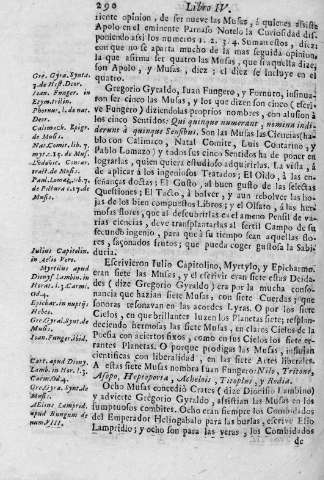 290 Libro IV.
riente opinion, de ser nueve las Musas, à quienes assiste
Apolo en el eminente Parnaso Notelo la Curiosidad dis-
poniendo assi los numeros 1. 2. 3. 4. Sumanse los diez:
con que no se aparta mucho de la mas seguida opinion,
la que afirma ser quatro las Musas, que si aquella dize
son Apolo, y Musas, diez; el diez se incluye en el
quatro.
Gregorio Gyraldo, Iuan Fungero, y Fornuto, insinua-
ron ser cinco las Musas, y los que dizen son cinco (escri-
ve Fungero) diziendolas proprios nombres, con alusion à
los cinco Sentidos: Qui quinque numerant, nomina indi-
derunt à quinque Sensibus. Son las Musas las Ciencias (ha-
blo con Calimaco, Natal Comite, Luis Contarino, y
Paulo Lomazo) y todos cinco Sentidos ha de poner en
lograrlas, quien quiera estudioso adquirirlas. La vista, à
de aplicar à los ingeniosos Tratados; El Oìdo, à las en-
señanças doctas; El Gusto, al buen gusto de las selectas
Questiones; El Tacto, à bolver, y aun rebolver las ho-
jas de los bien compuestos Libros; y el Olfato, à las her-
mosas flores, que al descubrirlas en el ameno Pensil de va-
rias ciencias, deve transplantarlas al fertil Campo de su
fecundo ingenio, para que à su tiempo sean aquellas flo-
res, saçonados frutos; que pueda coger gustosa la Sabi-
duria.
Escrivieron Iulio Capitolino, Myrtylo, y Epicharmo
eran siete las Musas, y el escrivir eran siete estas Deida-
des (dize Gregorio Gyraldo) era por la mucha conso-
nancia que hazian siete Musas, con siete Cuerdas; que
sonoras resonavan en las acordes Lyras. O por los siete
Cielos, en que brillantes luzen los Planetas siete; resplan-
deciendo hermosas las siete Musas, en claros Cielos de la
Poesia con aciertos fixos, como en sus Cielos los siete er-
rantes Planetas. O porque prodigas las Musas, insufian
cientificas con liberalidad, en las siete Artes liberales.
A estas siete Musas nombra Iuan Fungero: Nilo, Tritone,
Asopo, Heptapora, Achelois, Tipoplus, y Rodia.
Ocho Musas concediò Crates (dize Dionisio Lambino)
y advierte Gregorio Gyraldo, assistian las Musas en los
sumptuosos combites. Ocho eran siempre los Combidados
del Emperador Heliogabalo para las burlas, escrive Elio
Lampridio; y ocho son para las veras, los Combidados
de
Gre. Gyra. Synta.
7. de Hist. Deor.
Ioan. Funger. in
Etym. trilin.
Phornut. l. de nat.
Deor.
Calimach. Epigr.
de Musis.
Nat. Comit. lib. 7.
de Pictura
Iulius Capitolin.
in
Myrtilus apud
Dionys. Lambin. in
Horat. l. 3. Carm.
Od. 4.
Epichar. in nuptijs
Hebes.
Gre. Gyral. Synt. de
Musis.
Ioan. Funger. ibid.
Crat. apud Dionys.
Lamb. in Hor. l. 3.
Carm. Od. 4.
Gre. Gyra. Synt. de
Musis.
Ælius Lamprid.
apud
num VIII.